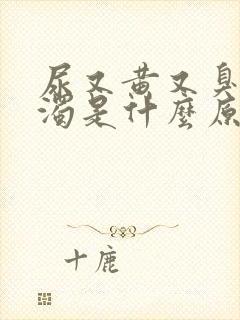 尿又黄又臭
浊是什麼原
十鹿